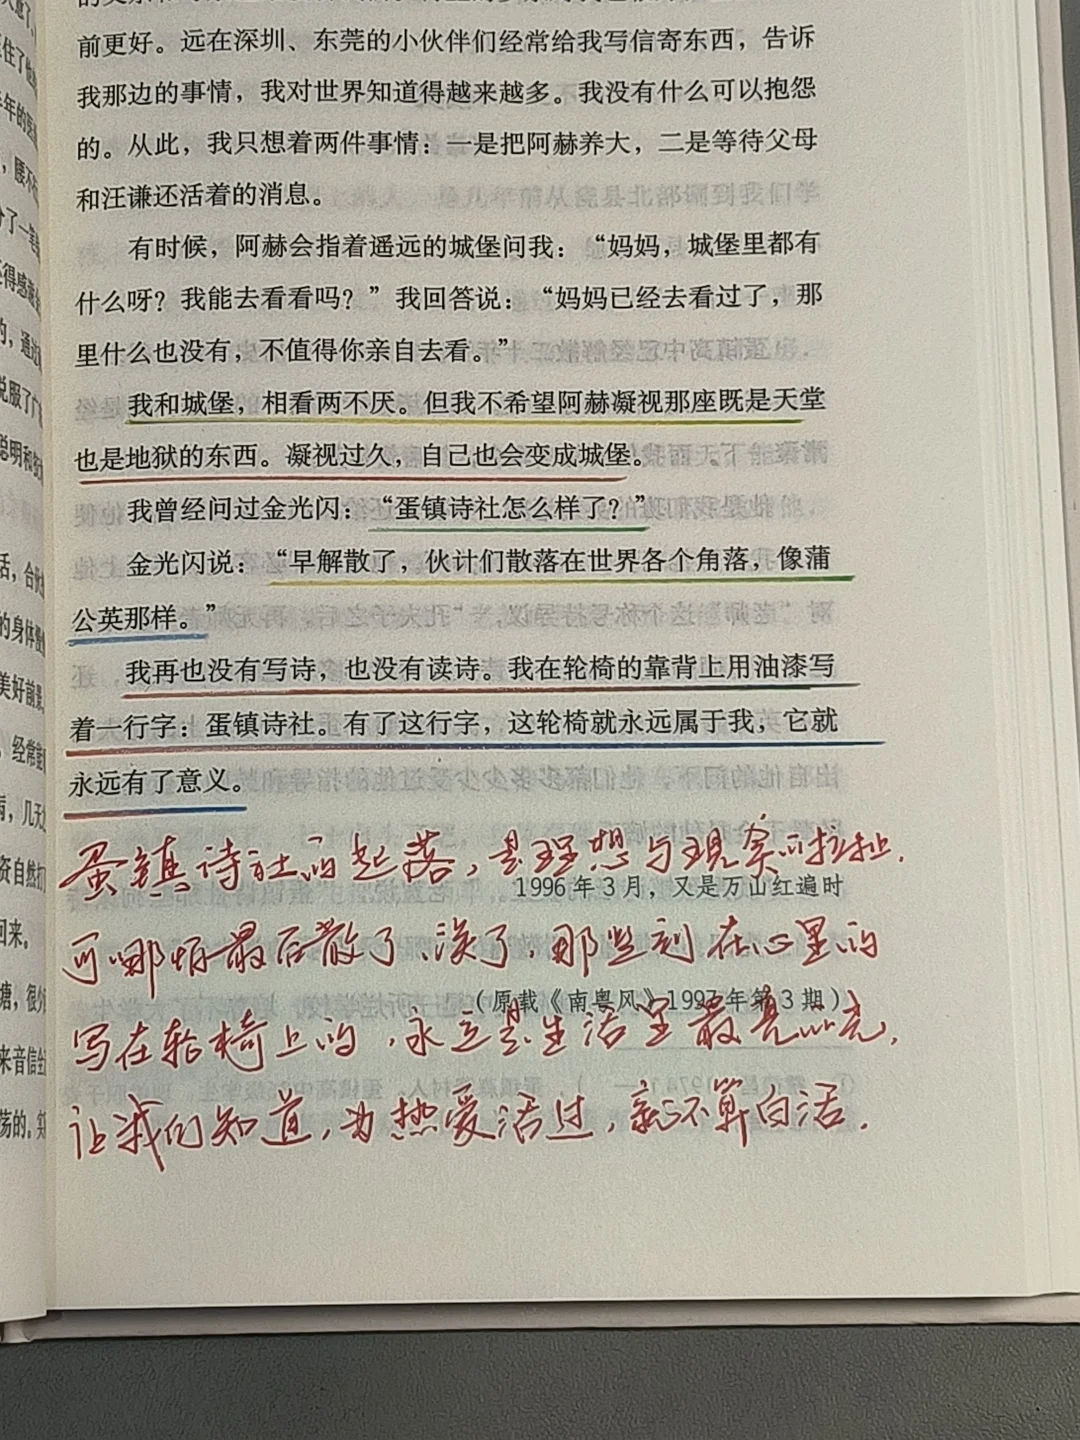 前更好。远在深圳、东莞的小伙伴们经常给我写信寄东西，告诉
我那边的事情，我对世界知道得越来越多。我没有什么可以抱怨
的。从此，我只想着两件事情：一是把阿赫养大，二是等待父母
和汪谦还活着的消息。
有时候，阿赫会指着遥远的城堡问我：“妈妈，城堡里都有
什么呀？我能去看看吗？”我回答说：“妈妈已经去看过了，那
里什么也没有，不值得你亲自去看。”
我和城堡，相看两不厌。但我不希望阿赫凝视那座既是天堂
也是地狱的东西。凝视过久，自己也会变成城堡。
我曾经问过金光闪：“蛋镇诗社怎么样了？”
金光闪说：“早解散了，伙计们散落在世界各个角落，像蒲
公英那样。”
我再也没有写诗，也没有读诗。我在轮椅的靠背上用油漆写
着一行字：蛋镇诗社。有了这行字，这轮椅就永远属于我，它就
永远有了意义。
蛋镇诗社的起落，是理想与现实的拉扯.
1996年3月，又是万山红遍时
可哪怕最后散了、淡了，那些刻在心里的
（原载《南粤风》1997年第3期）
写在轮椅上的，永远是生活里最亮的光,
让我们知道，为热爱活过，就不算白活.